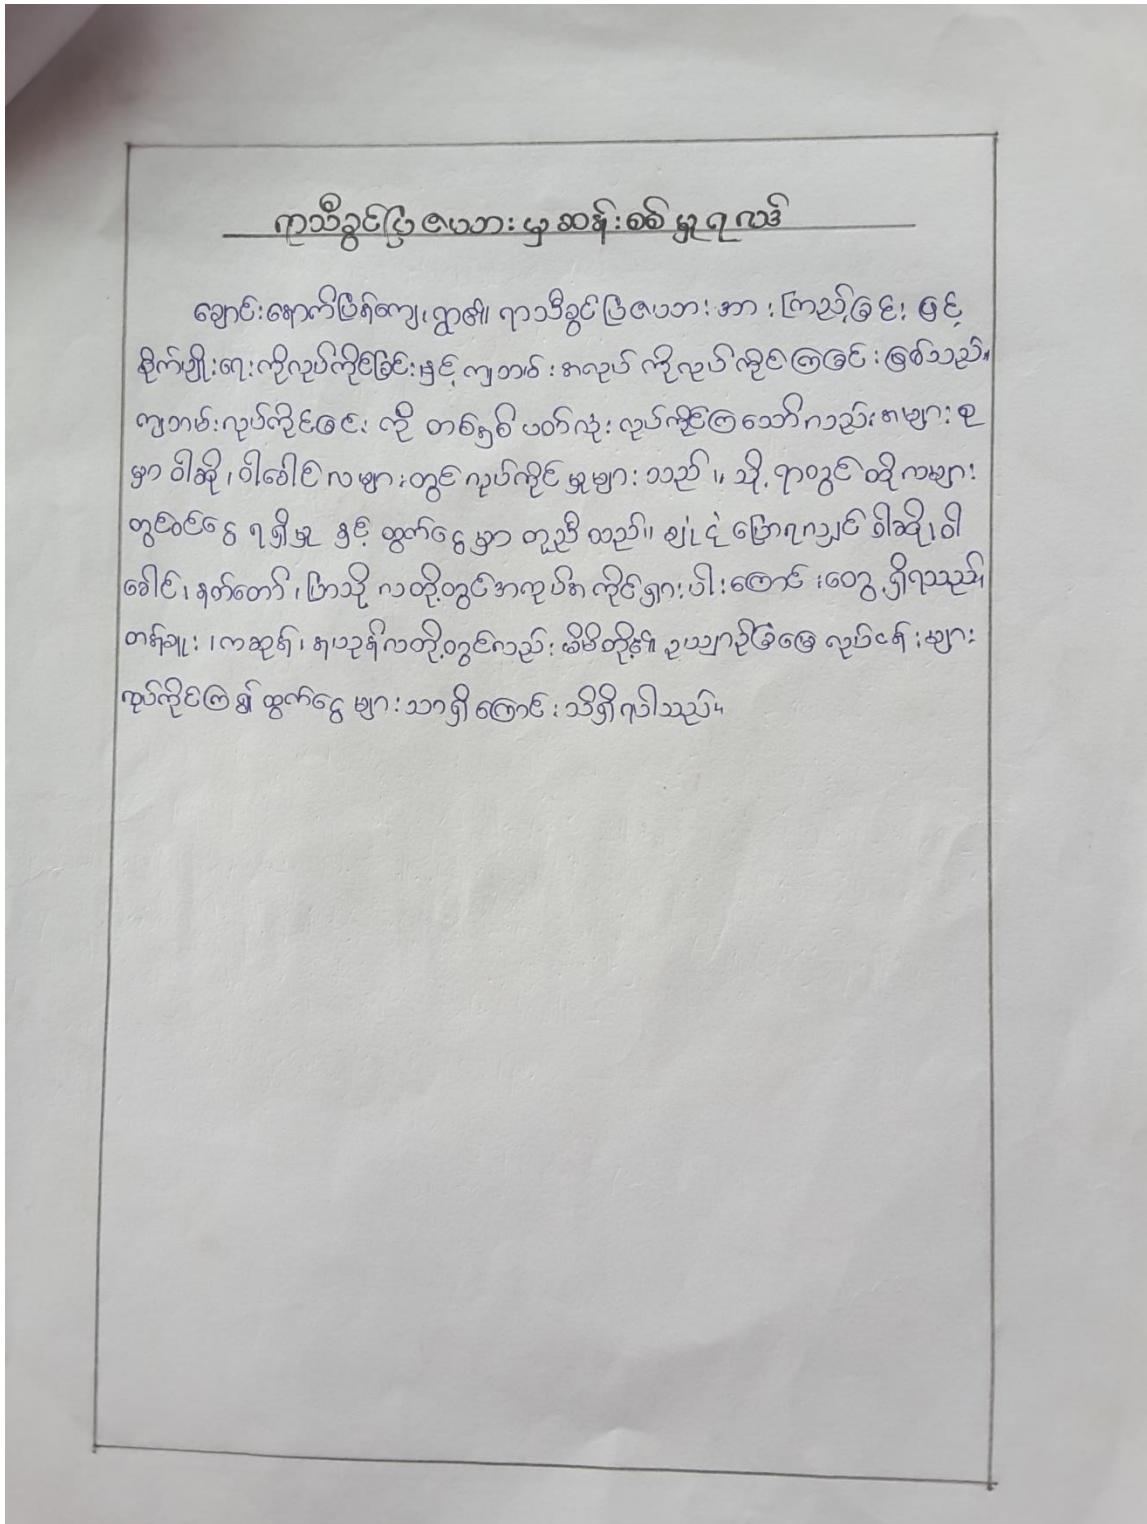 ရာသီခွင်ပြဇယားမှ ဆန်းစစ်မှုရလဒ်
ချောင်းနောက်ပြန်ကျေးရွာ၏ ရာသီခွင်ပြဇယားအား ကြည့်ခြင်းဖြင့်
စိုက်ပျိုးရေးကိုလုပ်ကိုင်ခြင်းနှင့် ကျဘမ်းအလုပ်ကိုလုပ်ကိုင်ကြခြင်းဖြစ်သည်။
ကျဘမ်းလုပ်ကိုင်ခြင်းကို တစ်နှစ်ပတ်လုံး လုပ်ကိုင်ကြသော်လည်း အများစု
မှာ ဝါဆို၊ ဝါခေါင်လများတွင် လုပ်ကိုင်မှုများသည်။ သို့ရာတွင် ထိုလများ
တွင်ဝင်ငွေ ရရှိမှု နှင့် ထွက်ငွေမှာ တူညီသည်။ ခြုံငုံပြောရလျှင် ဝါဆို၊ ဝါ
ခေါင်၊ နတ်တော်၊ ပြာသို လတို့တွင်အလုပ်အကိုင်ရှားပါးကြောင်းတွေ့ရှိရသည်။
တန်ခူး၊ ကဆုန်၊ နယုန်လတို့တွင်လည်း မိမိတို့၏ ဥယျာဉ်ခြံမြေ လုပ်ငန်းများ
လုပ်ကိုင်ကြ၍ ထွက်ငွေများသာရှိကြောင်း သိရှိရပါသည်။